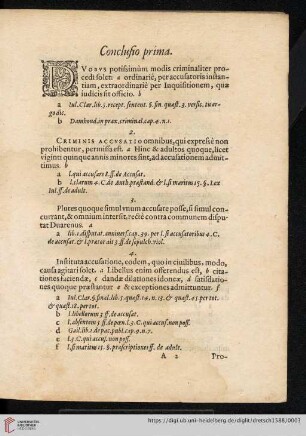 Conclusio prima.
DVOBVS potissimùm modis criminaliter pro-
cedi solet: a ordinariè, per accusatoris instan-
tiam, extraordinariè per Inquisitionem, quæ
iudicis fit officio. b
a Iul. Clar. lib. 5. recept. sentent. §. fin. quæst. 3. versic. in ar-
b Damhoud. in prax. criminal. cap. 4. n. 1.
2.
CRIMINIS ACCVSATIO omnibus, qui expresè non
prohibentur, permissa est. a Hinc & adultos quoque, licet
viginti quinque annis minores sint, ad accusationem admit-
timus. b
a l. qui accusare 8. ff. de Accusat.
b l. clarum 4. C. de auth. præstand. & l. si maritum 15. §. Lex
Iul. ff. de adult.
3.
Plures quoque simul vnum accusare posse, si simul con-
currant, & omnium intersit, rectè contra communem dispu-
tat Duarenus. a
a lib. 1. disputat. anniuers. cap. 39. per l. si accusatoribus 4. C.
de accusat. & l. prætor ait 3. ff. de sepulch. viol.
4.
Instituta accusatione, eodem, quo in ciuilibus, modo,
causa agitari solet. a Libellus enim offerendus est, b cita-
tiones faciendæ, c dandæ dilationes idoneæ, d satisdatio-
nes quoque præstantur e & exceptiones admittuntur. f
a Iul. Clar. §. final. lib. 5. quæst. 14. n. 13. & quæst. 45. per tot. &
quæst. 18. per tot.
b l. libellorum 3. ff. de accusat.
c l. absentem 5. ff. de pœn. l. 3. C. qui accus. non poss.
d Gail. lib. 1. de pac. publ. cap. 9. n. 1.
e l. 3. C. qui accus. non poss.
f l. si maritum 15. §. præscriptiones ff. de adult.
A 2 Pro-
https://digi.ub.uni-heidelberg.de/diglit/dretsch1588/0003
UNIVERSITÄTS-
BIBLIOTHEK
HEIDELBERG